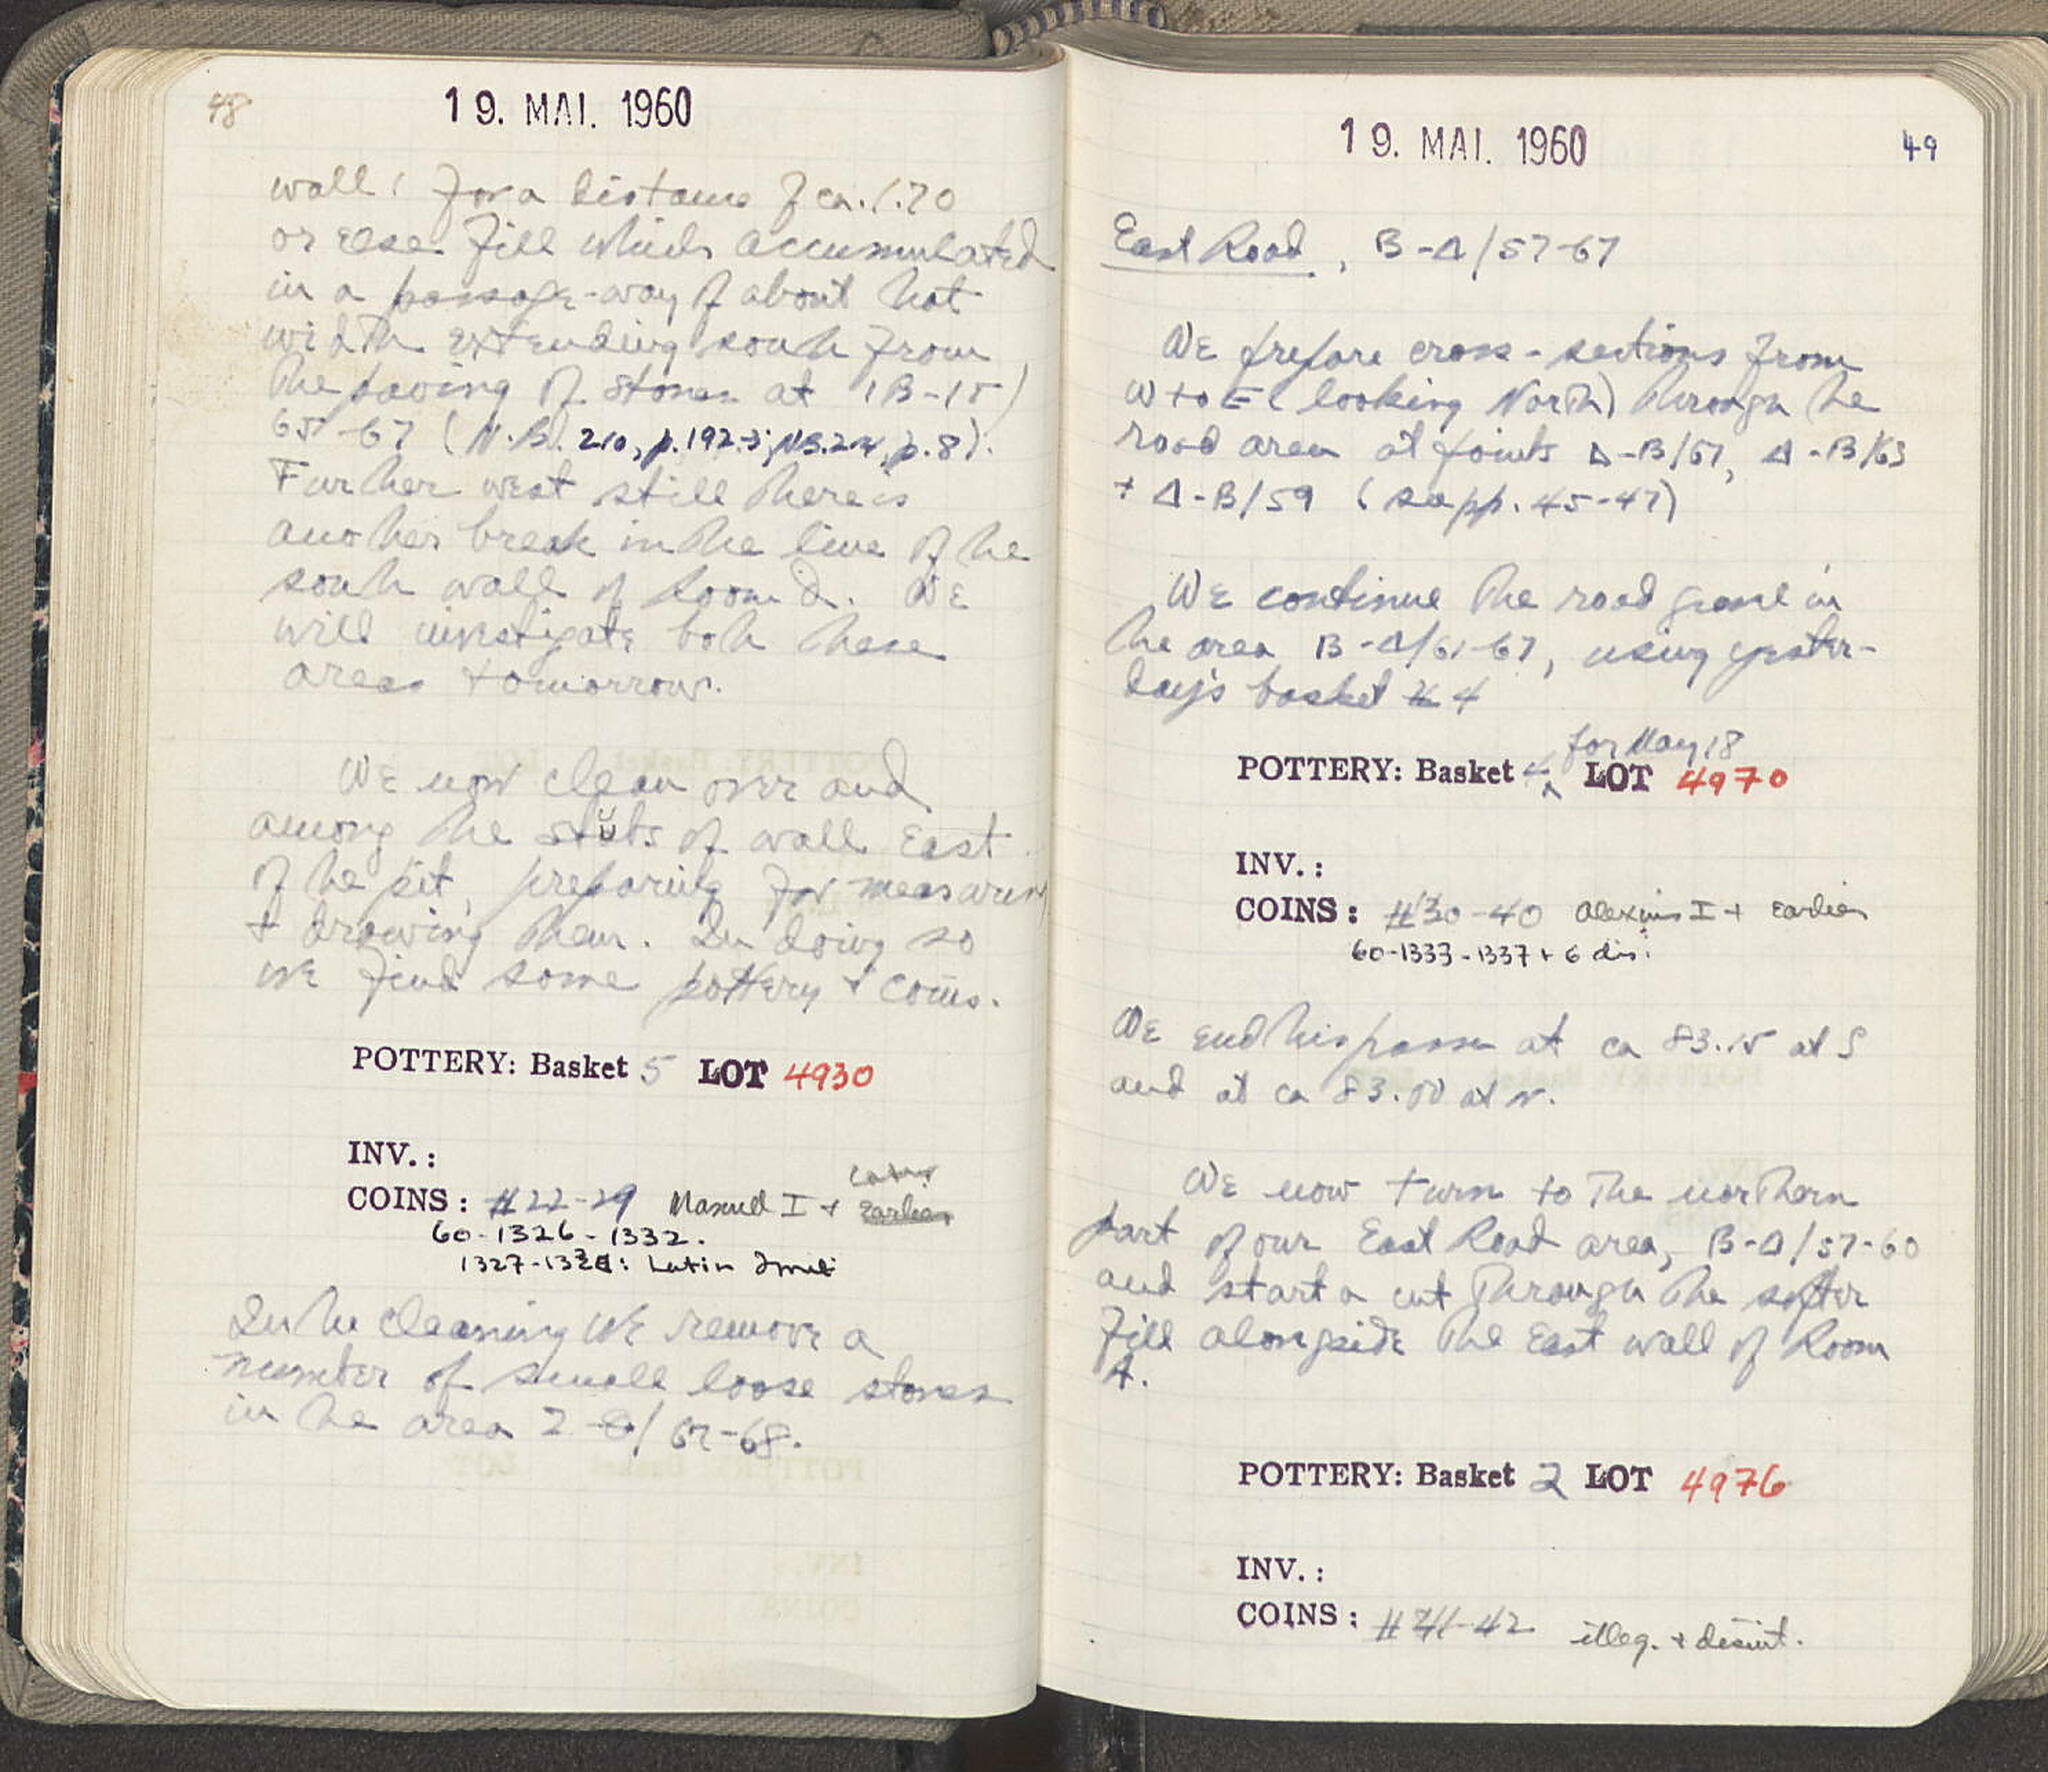 48
19. MAI. 1960
wall! for a distance of ca. 1.70
or else fill which accumulated
in a passage-way of about that
width extending south from
the paving of stones at (B-15/
65-67 (N.B. 210, p.192-3; NB. p.8).
Further west still there is
another break in the line of the
south wall of Room D. We
will investigate both these
areas tomorrow.
We now clean over and
among the stubs of wall East
of the pit, preparing for measuring
+ drawing them. In doing so
we find some pottery + coins.
POTTERY: Basket 5 LOT 4930
INV.:
COINS: #22-29 Manuel I + Latin Earlier
60-1326-1332.
Latin Imit
In the cleaning we remove a
number of small loose stones
in the area 67-68.
19. MAI. 1960
49
East Road, B-Δ/57-67
We prepare cross-sections from
W to E (looking North) through the
road area at points Δ-B/67, Δ-B/63
+ Δ-B/59 (see pp. 45-47)
We continue the road gravel in
the area B-Δ/61-67, using yester-
day's basket # 4
for May 18
POTTERY: Basket 4 LOT 4970
INV.:
COINS: #30-40 Alexius I + Earlier
60-1333-1337 + 6 dis.
We end this pass at ca 83.15 at S
and at ca 83.00 at N.
We now turn to the northern
part of our East Road area, B-Δ/57-60
and start a cut through the softer
fill alongside the East wall of Room
A.
POTTERY: Basket 2 LOT 4976
INV.:
COINS: #41-42 illeg. + disint.